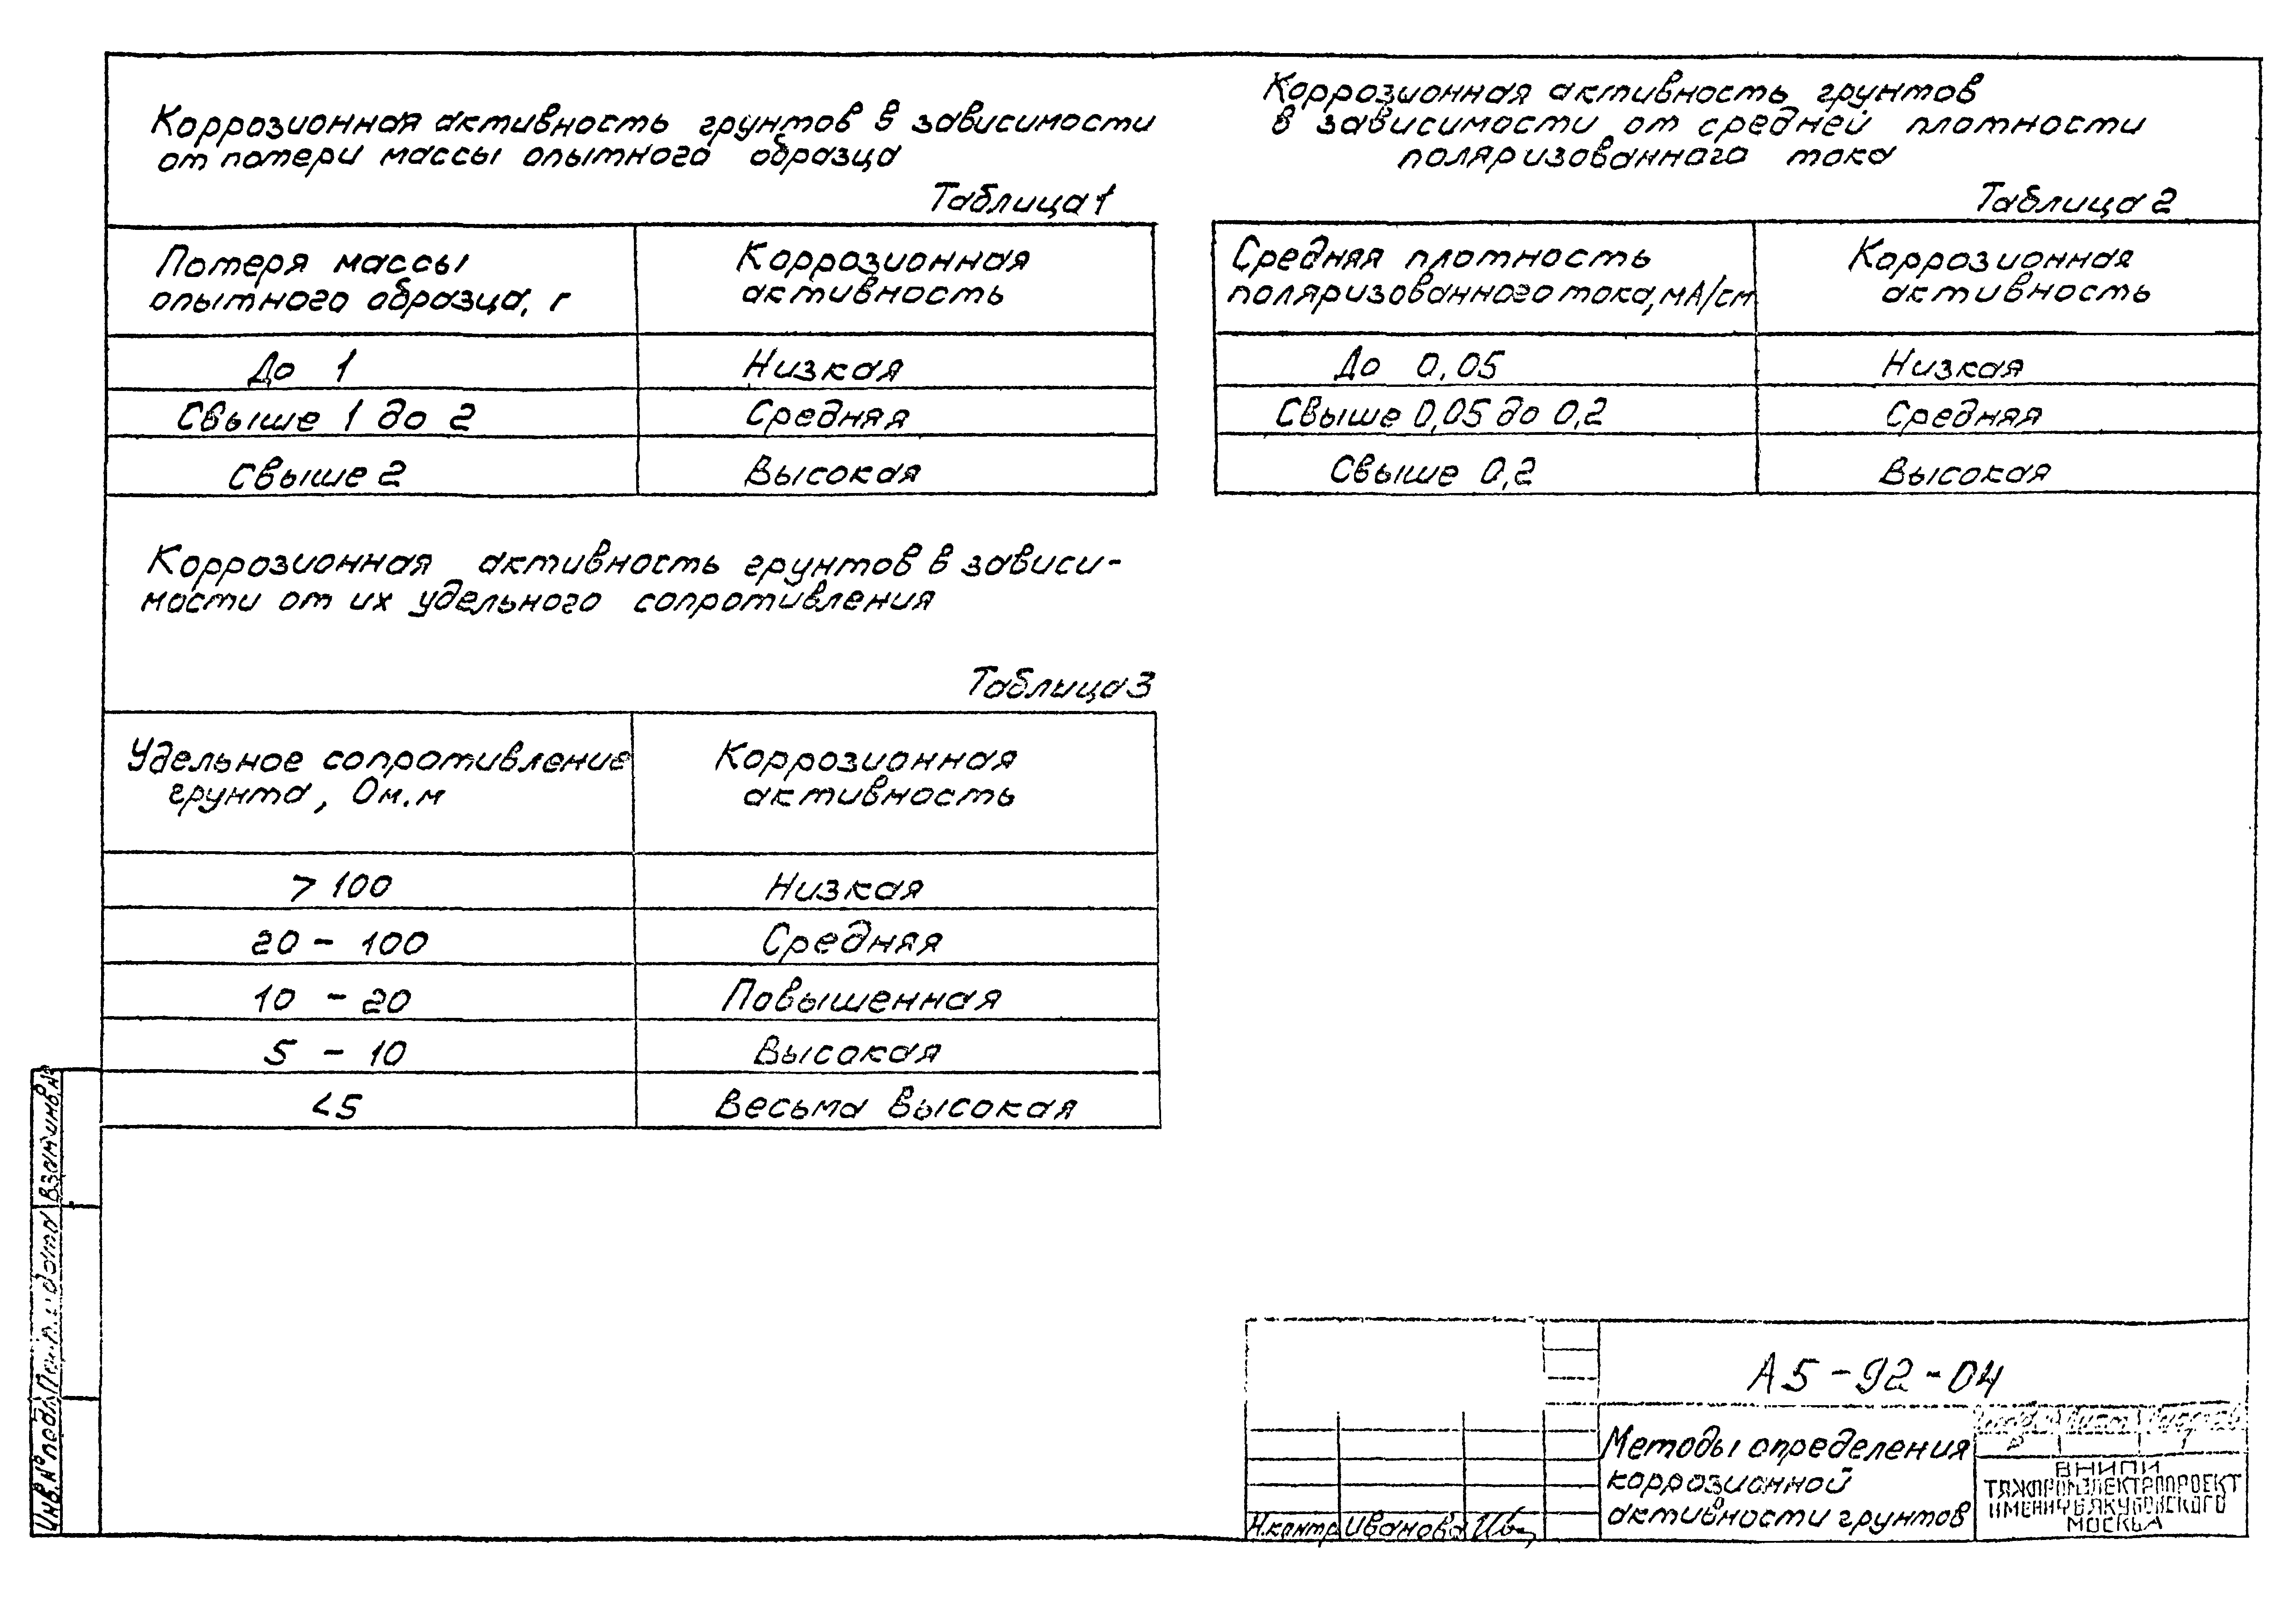 Коррозионная активность грунтов в зависимости
от потери массы опытного образца
Таблица 1
Потеря массы
опытного образца, г
Коррозионная
активность
До 1
Низкая
Свыше 1 до 2
Средняя
Свыше 2
Высокая
Коррозионная активность грунтов
в зависимости от средней плотности
поляризованного тока
Таблица 2
Средняя плотность
поляризованного тока, мА/см
Коррозионная
активность
До 0,05
Низкая
Свыше 0,05 до 0,2
Средняя
Свыше 0,2
Высокая
Коррозионная активность грунтов в зависи-
мости от их удельного сопротивления
Таблица 3
Удельное сопротивление
грунта, Ом.м
Коррозионная
активность
> 100
Низкая
20 - 100
Средняя
10 - 20
Повышенная
5 - 10
Высокая
<5
Весьма высокая
Взам инв. №
дата
Инв. № подл.
А5-92-04
Методы определения
коррозионной
активности грунтов
Лист
Р
1
ВНИПИ
ТЯЖПРОМЭЛЕКТРОПРОЕКТ
ИМЕНИ Ф.Б.ЯКУБОВСКОГО
МОСКВА
Н.контр. Иванова